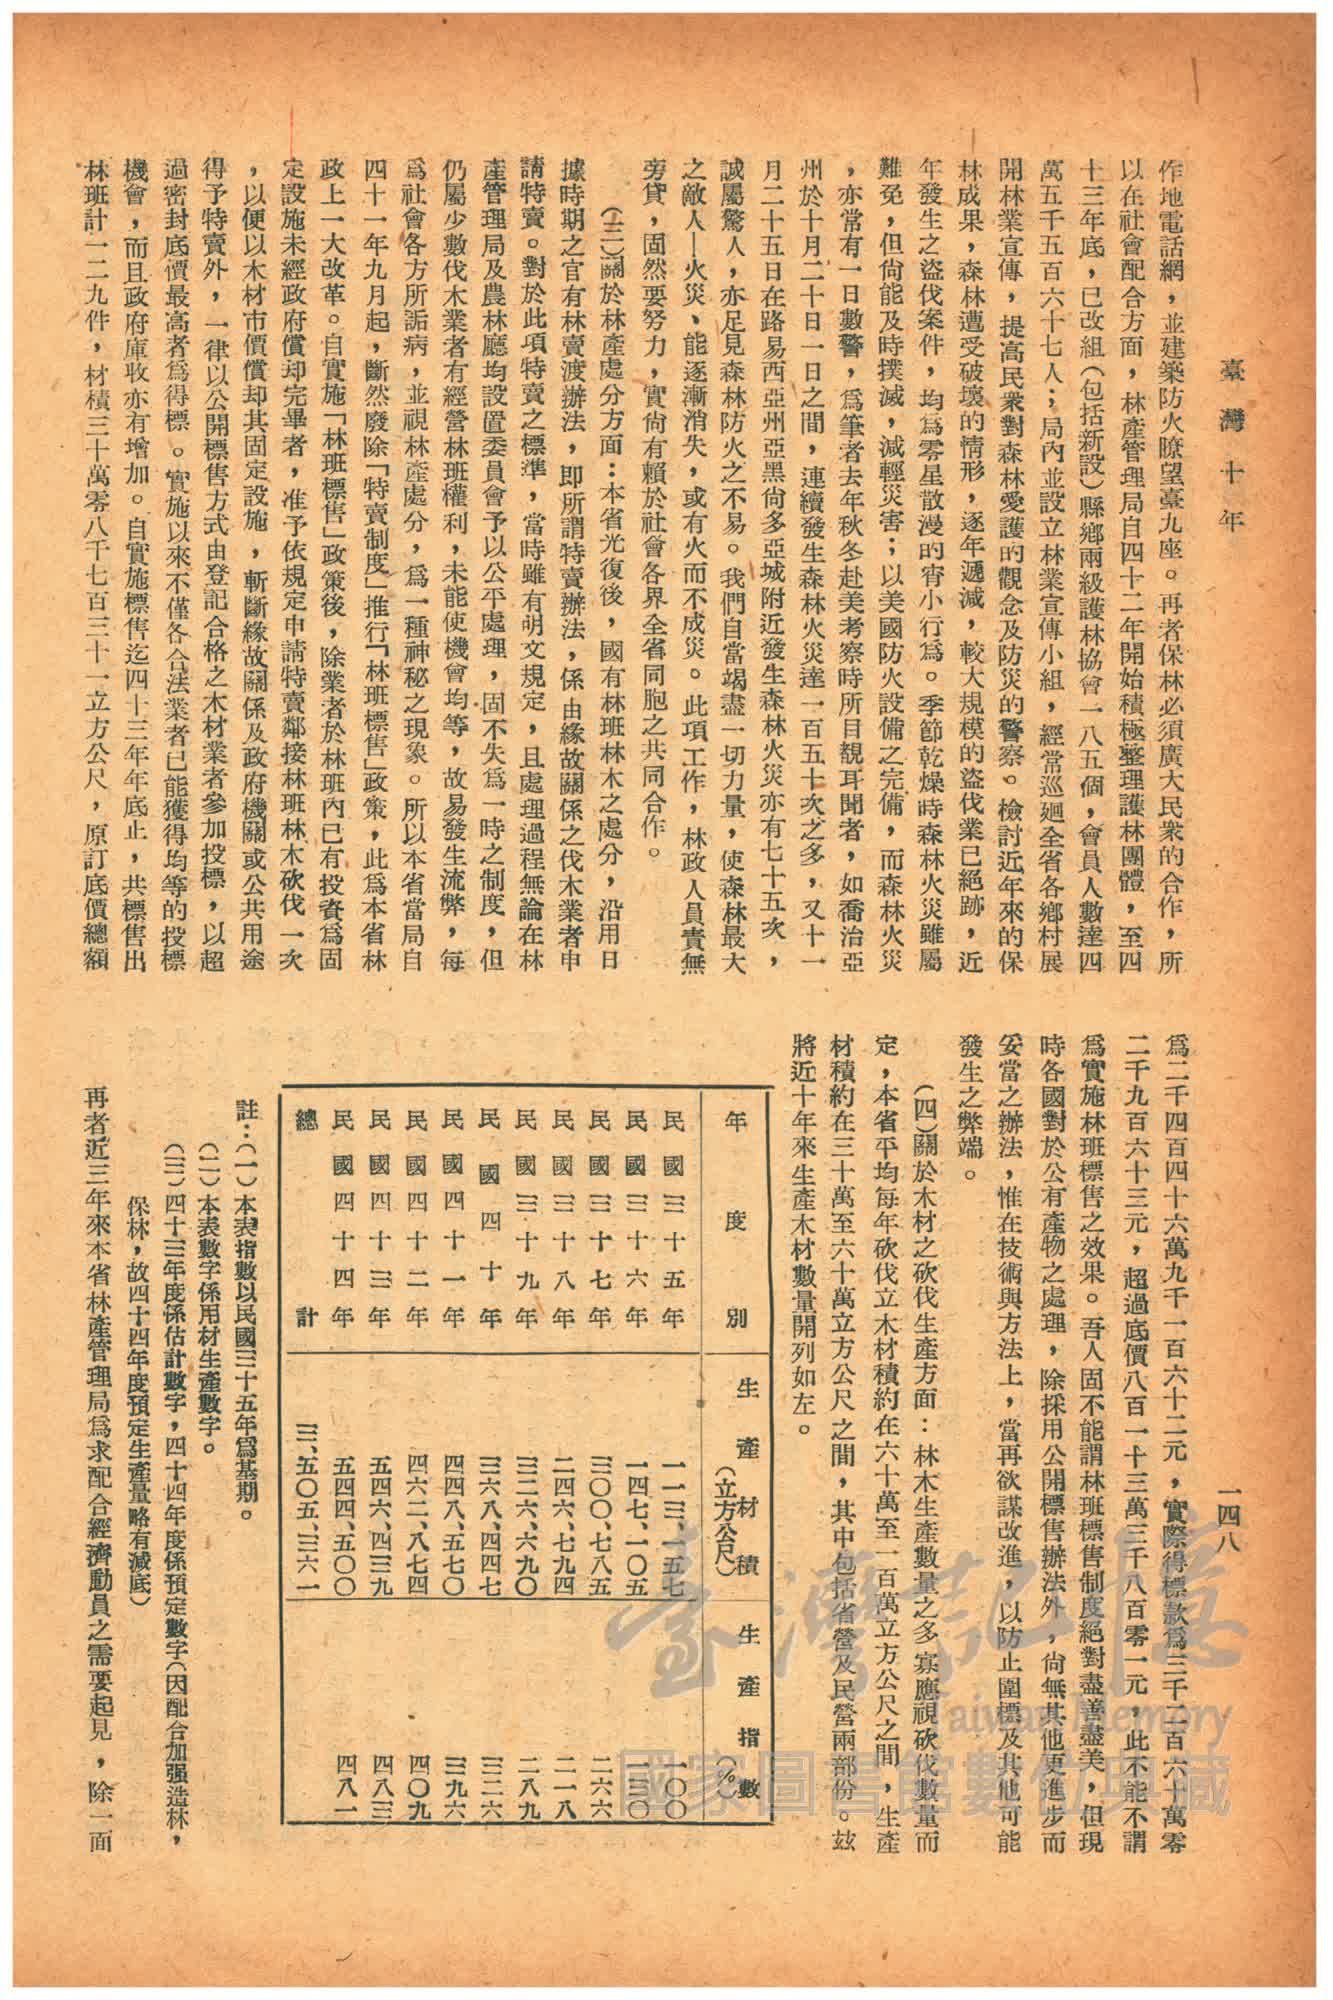 臺灣十年
一四八
作地電話網，並建築防火瞭望臺九座。再者保林必須廣大民衆的合作，所
以在社會配合方面，林產管理局自四十二年開始積極整理護林團體，至四
十三年底，已改組（包括新設）縣鄉兩級護林協會一八五個，會員人數達四
萬五千五百六十七人；局內並設立林業宣傳小組，經常巡廻全省各鄉村展
開林業宣傳，提高民衆對森林愛護的觀念及防災的警察。檢討近年來的保
林成果，森林遭受破壞的情形，逐年遞減，較大規模的盜伐業已絕跡，近
年發生之盜伐案件，均爲零星散漫的宵小行爲。季節乾燥時森林火災雖屬
難免，但尙能及時撲滅，減輕災害；以美國防火設備之完備，而森林火災
，亦常有一日數警，爲筆者去年秋冬赴美考察時所目覩耳聞者，如喬治亞
州於十月二十日一日之間，連續發生森林火災達一百五十次之多，又十一
月二十五日在路易西亞州亞黑尙多亞城附近發生森林火災亦有七十五次，
誠屬驚人，亦足見森林防火之不易。我們自當竭盡一切力量，使森林最大
之敵人—火災、能逐漸消失，或有火而不成災。此項工作，林政人員責無
旁貸，固然要努力，實尙有賴於社會各界全省同胞之共同合作。
（三）關於林產處分方面：本省光復後，國有林班林木之處分，沿用日
據時期之官有林賣渡辦法，即所謂特賣辦法，係由緣故關係之伐木業者申
請特賣。對於此項特賣之標準，當時雖有明文規定，且處理過程無論在林
產管理局及農林廳均設置委員會予以公平處理，固不失爲一時之制度，但
仍屬少數伐木業者有經營林班權利，未能使機會均等，故易發生流弊，每
爲社會各方所詬病，並視林產處分，爲一種神秘之現象。所以本省當局自
四十一年九月起，斷然廢除「特賣制度」推行「林班標售」政策，此爲本省林
政上一大改革。自實施「林班標售」政策後，除業者於林班內已有投資爲固
定設施未經政府償却完畢者，准予依規定申請特賣鄰接林班林木砍伐一次
，以便以木材市價償却其固定設施，斬斷緣故關係及政府機關或公共用途
得予特賣外，一律以公開標售方式由登記合格之木材業者參加投標，以超
過密封底價最高者爲得標。實施以來不僅各合法業者已能獲得均等的投標
機會，而且政府庫收亦有增加。自實施標售迄四十三年年底止，共標售出
林班計一二九件，材積三十萬零八千七百三十一立方公尺，原訂底價總額
爲二千四百四十六萬九千一百六十二元，實際得標款爲三千二百六十萬零
二千九百六十三元，超過底價八百一十三萬三千八百零一元，此不能不謂
爲實施林班標售之效果。吾人固不能謂林班標售制度絕對盡善盡美，但現
時各國對於公有產物之處理，除採用公開標售辦法外，尙無其他更進步而
妥當之辦法，惟在技術與方法上，當再欲謀改進，以防止圍標及其他可能
發生之弊端。
（四）關於木材之砍伐生產方面：林木生產數量之多寡應視砍伐數量而
定，本省平均每年砍伐立木材積約在六十萬至一百萬立方公尺之間，生產
材積約在三十萬至六十萬立方公尺之間，其中包括省營及民營兩部份。玆
將近十年來生產木材數量開列如左。
年度別 生產材積（立方公尺） 生產指數（％）
民國三十五年 一一三、一五七 一〇〇
民國三十六年 一四七、一〇五 一三〇
民國三十七年 三〇〇、七八五 二六六
民國三十八年 二四六、七九四 二一八
民國三十九年 三二六、六九〇 二八九
民國四十年 三六八、四四七 三二六
民國四十一年 四四八、五七〇 三九六
民國四十二年 四六二、八七四 四〇九
民國四十三年 五四六、四三九 四八三
民國四十四年 五四四、五〇〇 四八一
總計 三、五〇五、三六一
註：（一）本表指數以民國三十五年爲基期。
（二）本表數字係用材生產數字。
（三）四十三年度係估計數字，四十四年度係預定數字（因配合加强造林，
保林，故四十四年度預定生產量略有減底）
再者近三年來本省林產管理局爲求配合經濟動員之需要起見，除一面
臺灣記憶
Taiwan Memory
國家圖書館數位典藏